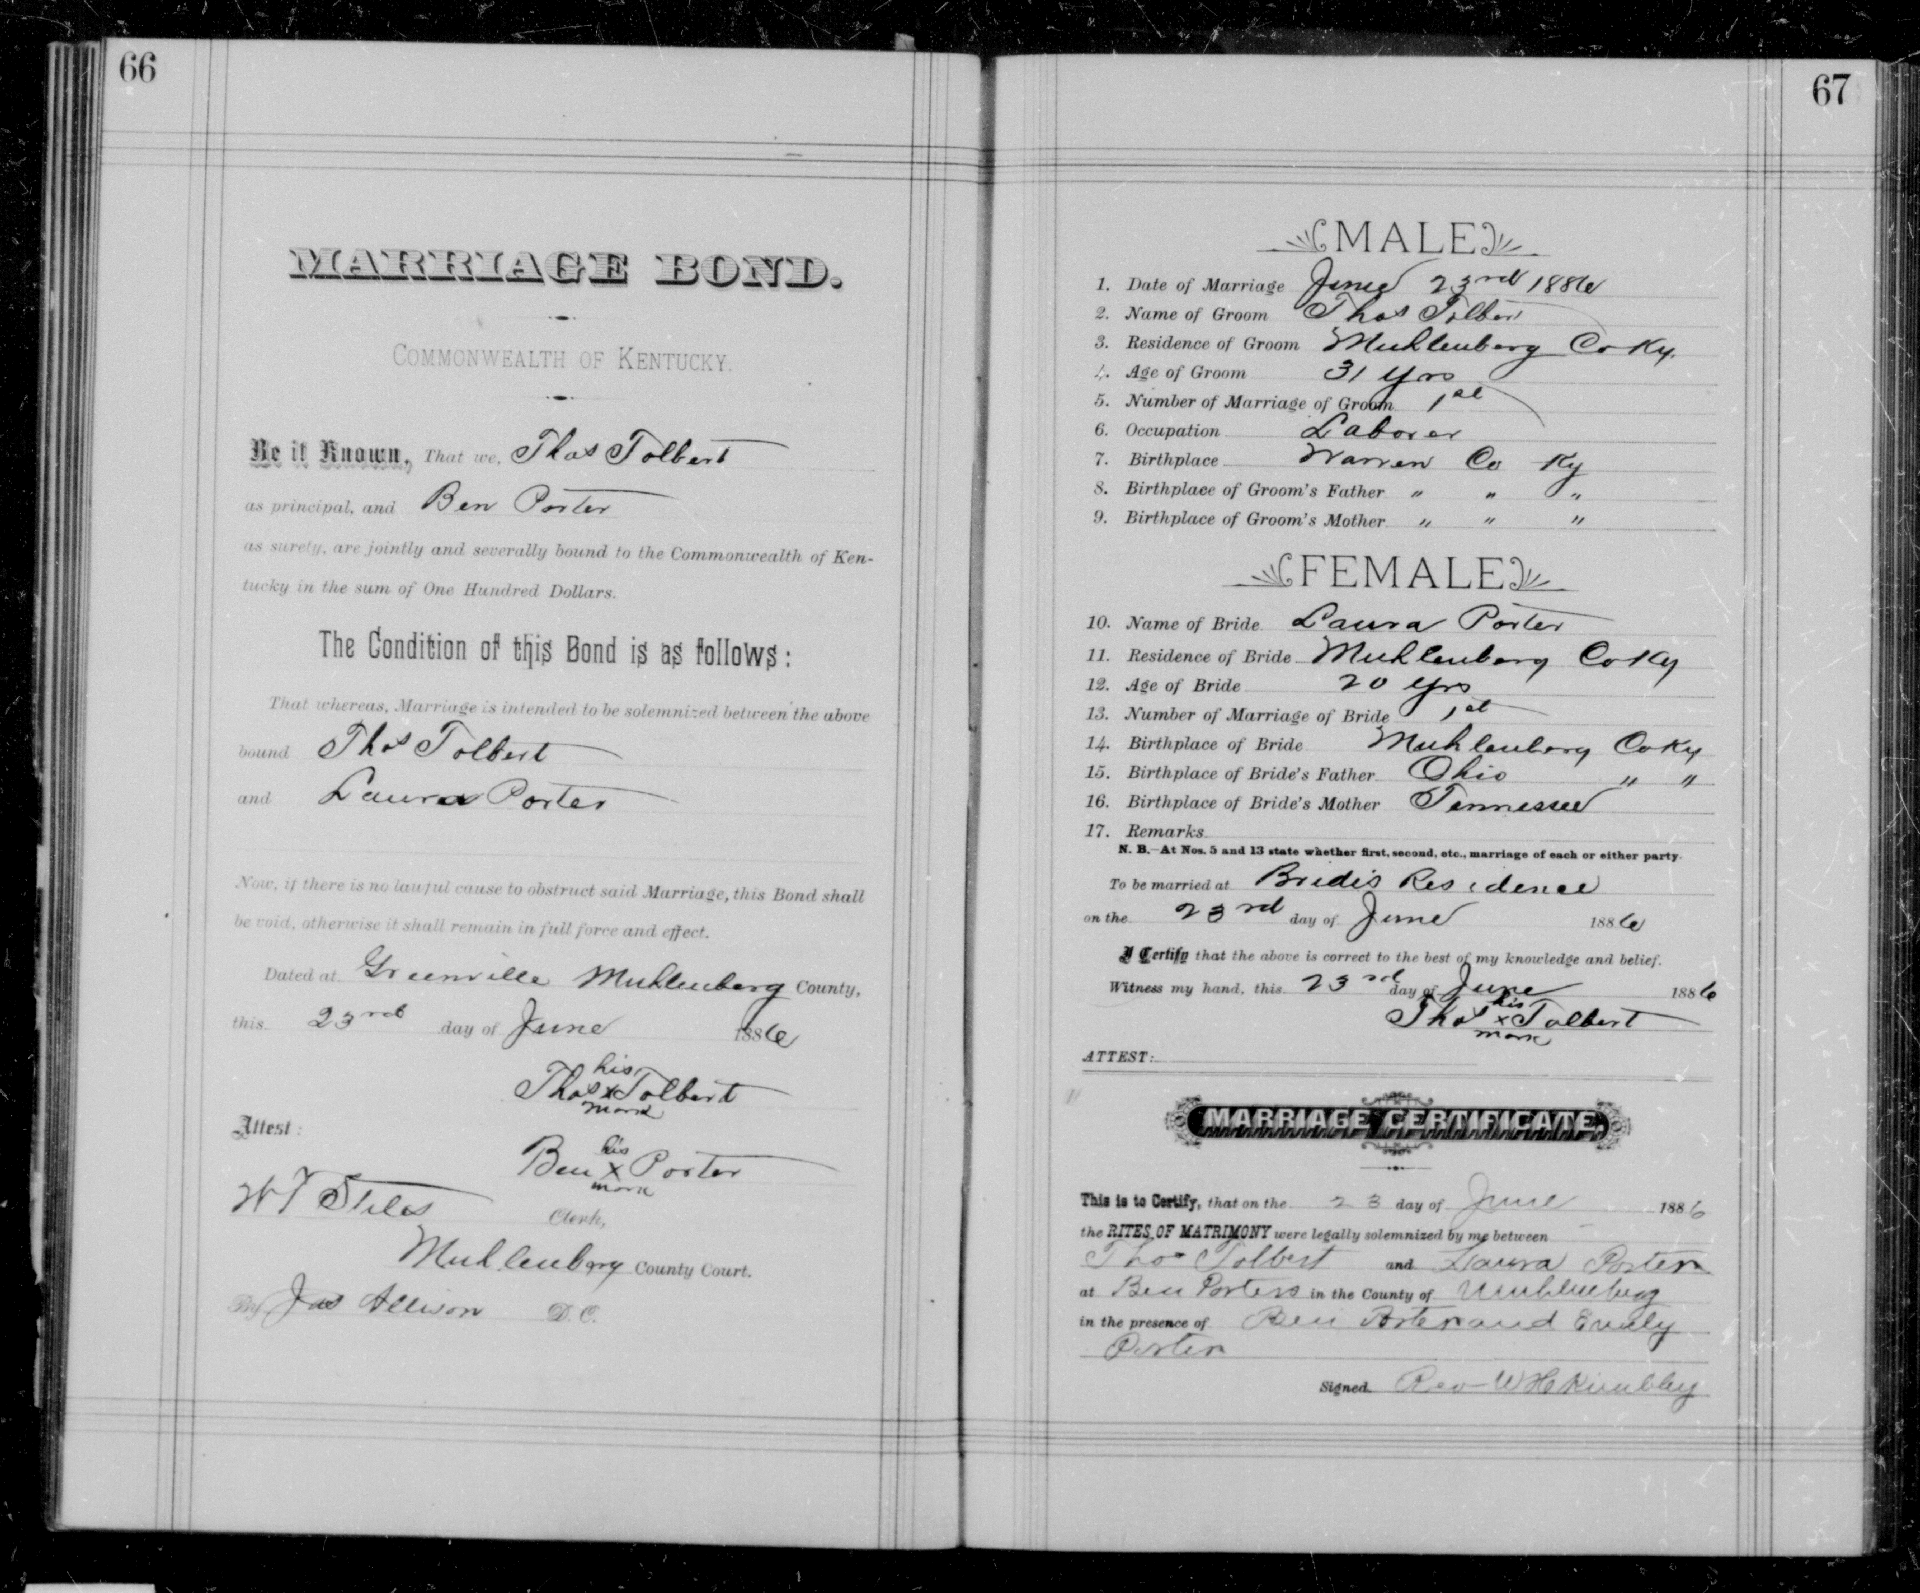 66
MARRIAGE BOND.
COMMONWEALTH OF KENTUCKY.
Be it Known, That we, Thos Tolbert
as principal, and Ben Porter
as surety, are jointly and severally bound to the Commonwealth of Ken-
tucky in the sum of One Hundred Dollars.
The Condition of this Bond is as follows:
That whereas, Marriage is intended to be solemnized between the above
bound Thos Tolbert
and Laura Porter
Now, if there is no lawful cause to obstruct said Marriage, this Bond shall
be void, otherwise it shall remain in full force and effect.
Dated at Greenville Muhlenberg County,
this 23rd day of June 1886
his
Thos x Tolbert
mark
Attest:
his
Ben x Porter
mark
W T Stiles Clerk,
Muhlenberg County Court.
By Jas Allison D. C.
67
MALE
1. Date of Marriage June 23rd 1886
2. Name of Groom Thos Tolbert
3. Residence of Groom Muhlenberg Co Ky.
4. Age of Groom 31 yrs
5. Number of Marriage of Groom 1st
6. Occupation Laborer
7. Birthplace Warren Co Ky
8. Birthplace of Groom's Father " " "
9. Birthplace of Groom's Mother " " "
FEMALE
10. Name of Bride Laura Porter
11. Residence of Bride Muhlenberg Co Ky
12. Age of Bride 20 yrs
13. Number of Marriage of Bride 1st
14. Birthplace of Bride Muhlenberg Co Ky
15. Birthplace of Bride's Father Ohio " "
16. Birthplace of Bride's Mother Tennessee
17. Remarks
N. B.—At Nos. 5 and 13 state whether first, second, etc., marriage of each or either party.
To be married at Bride's Residence
on the 23rd day of June 1886
I Certify that the above is correct to the best of my knowledge and belief.
Witness my hand, this 23rd day of June 1886
his
Thos x Tolbert
mark
ATTEST:
MARRIAGE CERTIFICATE.
This is to Certify, that on the 23 day of June 1886
the RITES OF MATRIMONY were legally solemnized by me between
Thos Tolbert and Laura Porter
at Ben Porters in the County of Muhlenberg
in the presence of Ben Porter and Emily
Porter
Signed Rev W H Kimbley